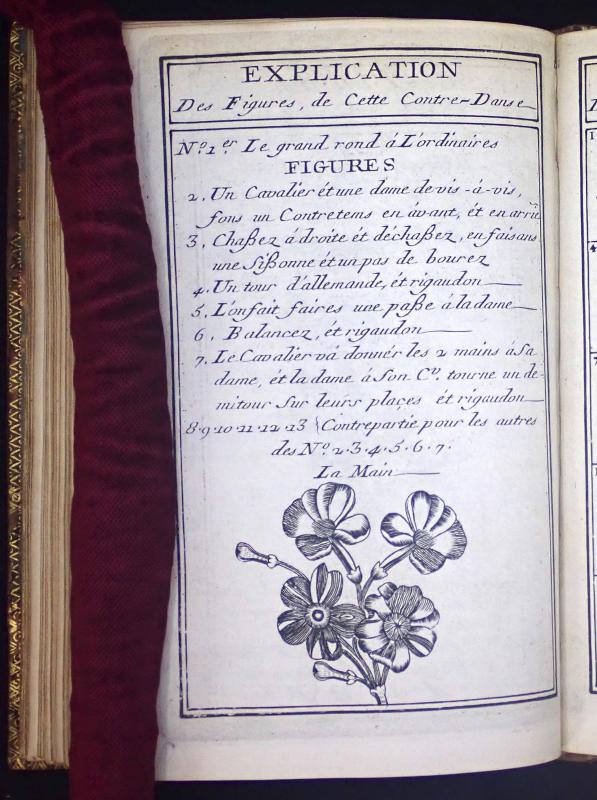 EXPLICATION
Des Figures, de Cette Contre-Danse
No. 1er. Le grand rond á L'ordinaires
FIGURES
2. Un Cavalier ét une dame de vis-á-vis,
fons un Contretems en ávant, ét en arriē
3. Chaßez á droite ét déchaßez, en faisans
une Sißonne ét un pas de bourez
4. Un tour d'allemande, ét rigaudon
5. L'on fait faires une paße á la dame
6. Balancez, ét rigaudon
7. Le Cavalier vá donnér les 2 mains á Sa
dame, ét la dame á Son Co. tourne un de-
mitour Sur leurs plaçes ét rigaudon
8.9.10.11.12.13 Contrepartie pour les autres
des No. 2.3.4.5.6.7.
La Main
1
4
7